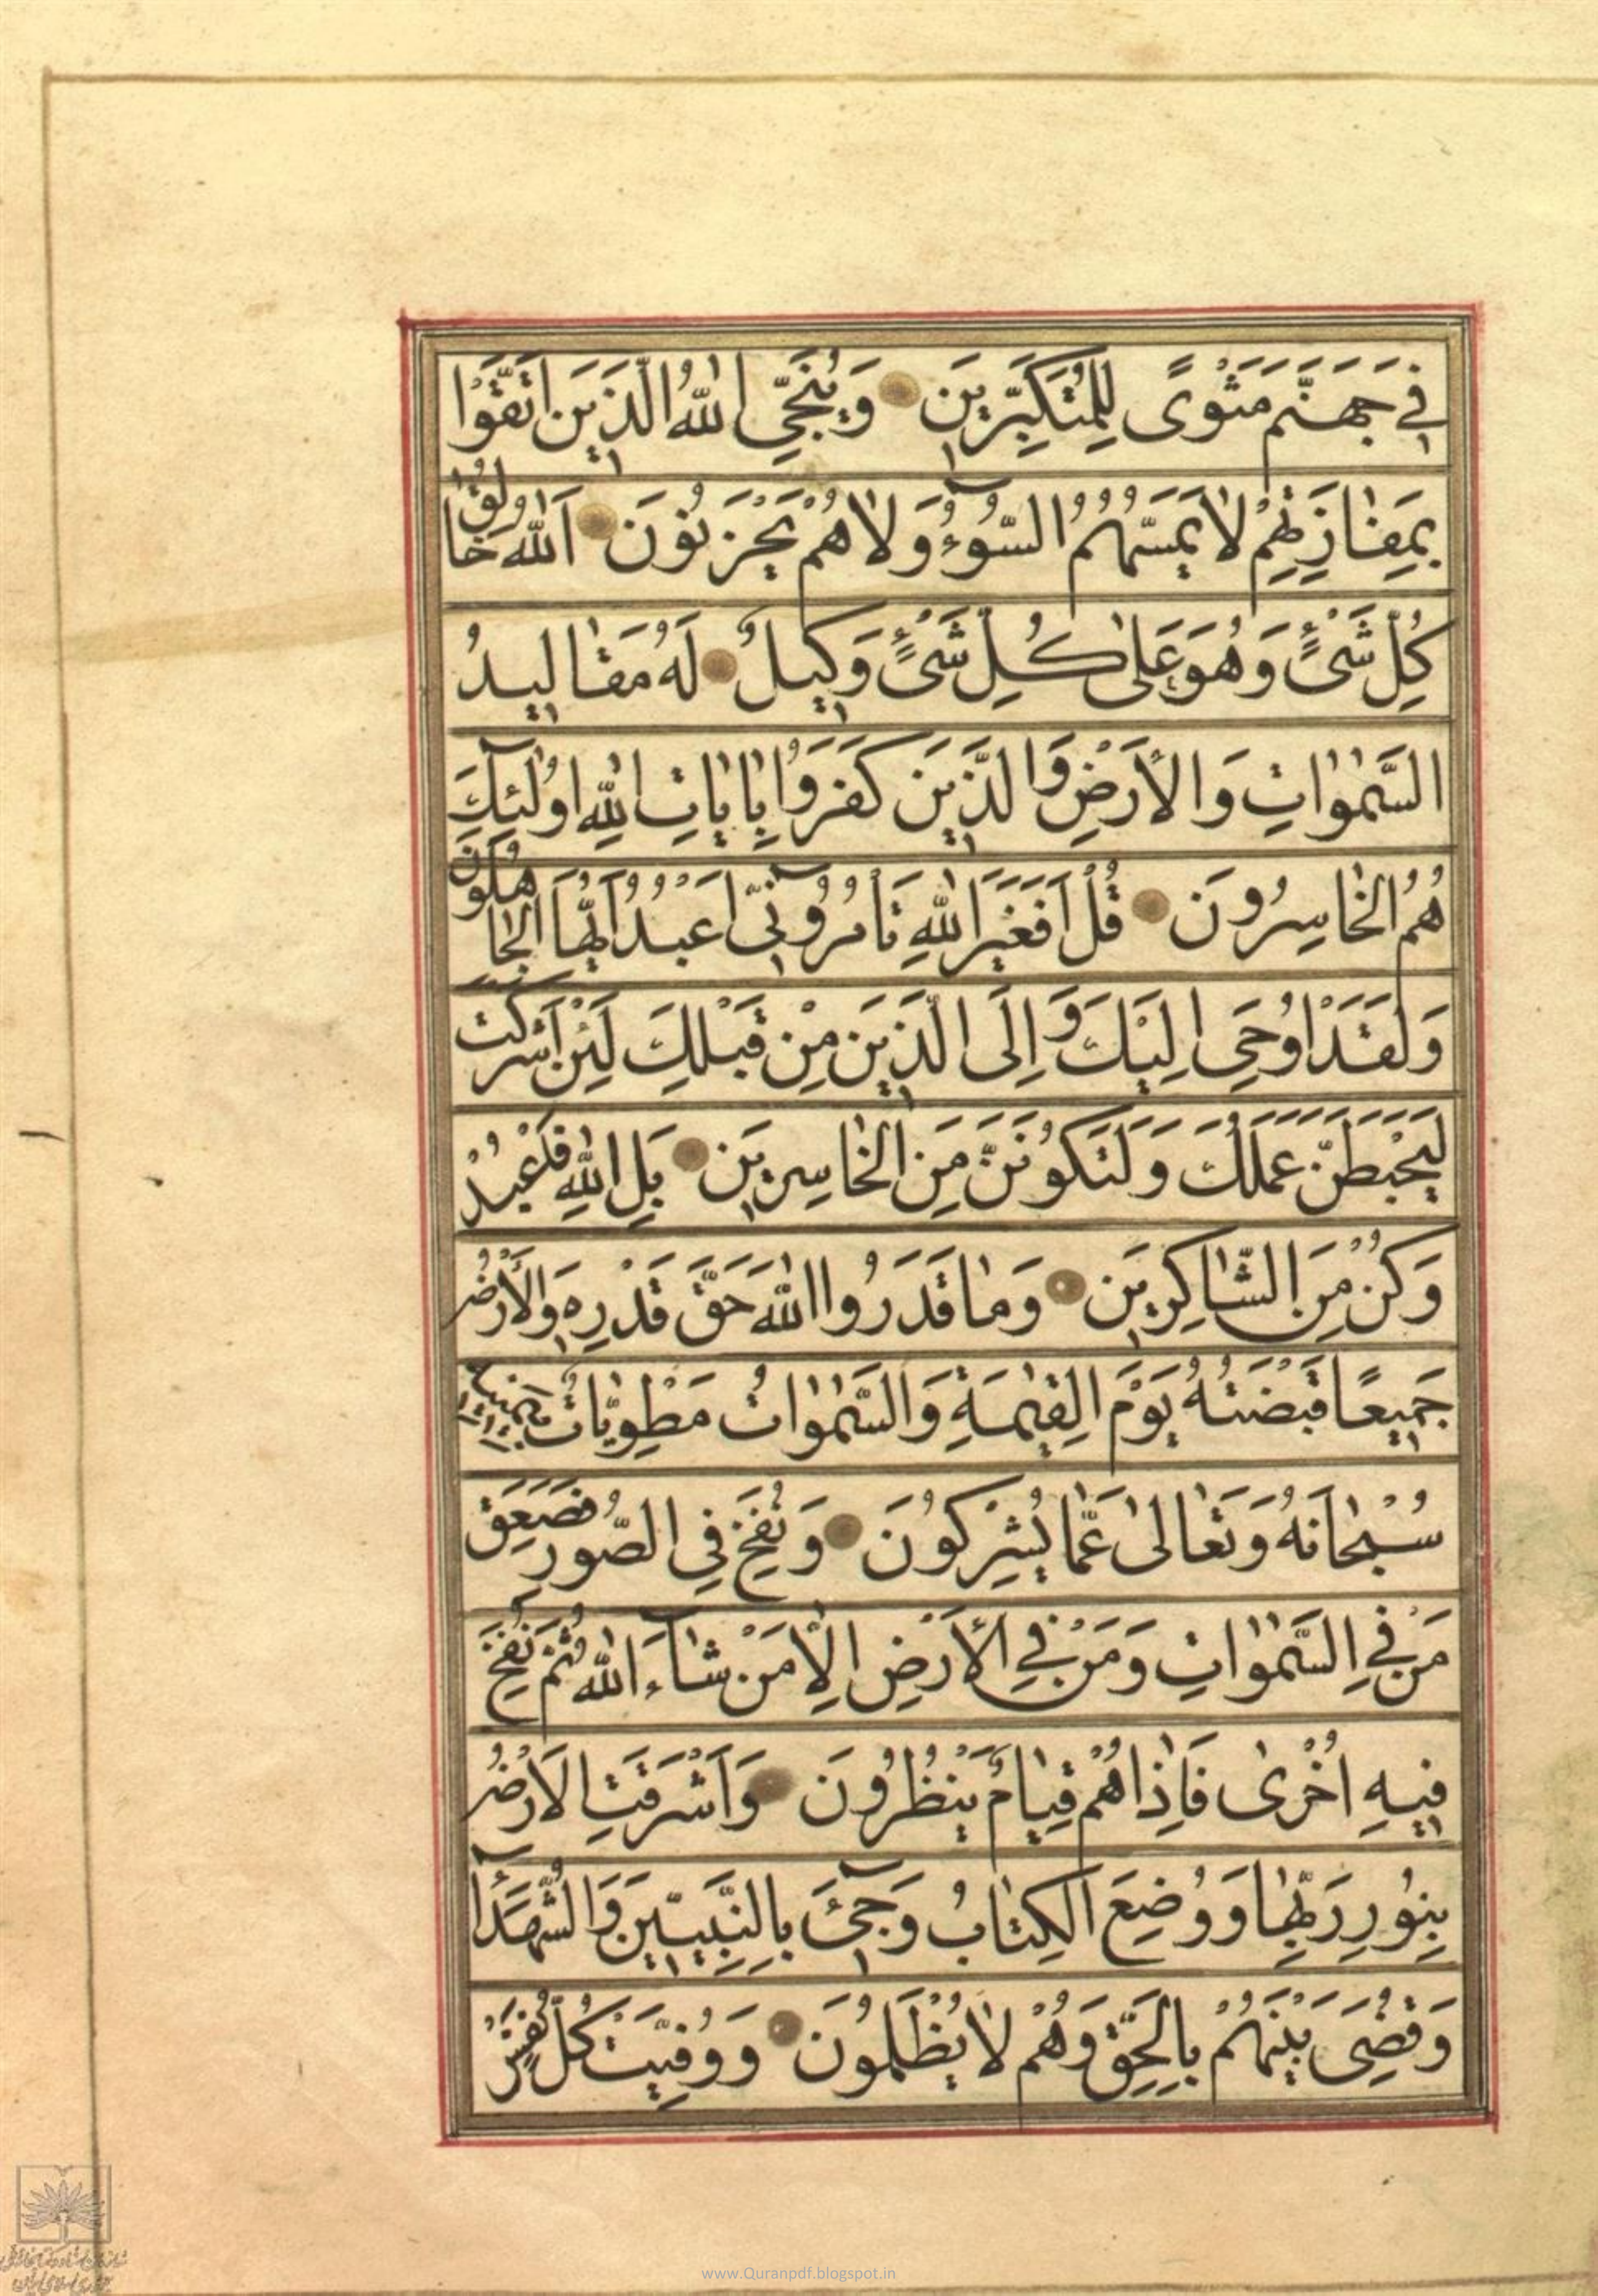 في جَهَنَّمَ مَثْوًى لِلْمُتَكَبِّرِينَ وَيُنَجِّي اللهُ الَّذِينَ اتَّقَوْا
بِمَفٰازَتِهِمْ لاٰ يَمَسُّهُمُ السُّوۤءُ وَلاٰ هُمْ يَحْزَنُونَ اَللّٰهُ خٰالِقُ
كُلِّ شَيْءٍ وَهُوَ عَلٰى كُلِّ شَيْءٍ وَكِيلٌ لَهُ مَقٰالِيدُ
السَّمٰوٰاتِ وَالْأَرْضِ وَالَّذِينَ كَفَرُوا بِاٰيٰاتِ اللّٰهِ اُولٰۤئِكَ
هُمُ الْخٰاسِرُونَ قُلْ اَفَغَيْرَ اللّٰهِ تَأْمُرُوۤنِّى اَعْبُدُ اَيُّهَا الْجٰاهِلُونَ
وَلَقَدْ اُوحِيَ اِلَيْكَ وَاِلَى الَّذِينَ مِنْ قَبْلِكَ لَئِنْ اَشْرَكْتَ
لَيَحْبَطَنَّ عَمَلُكَ وَلَتَكُونَنَّ مِنَ الْخٰاسِرِينَ بَلِ اللّٰهَ فَاعْبُدْ
وَكُنْ مِنَ الشّٰاكِرِينَ وَمٰا قَدَرُوا اللّٰهَ حَقَّ قَدْرِهِ وَالْأَرْضُ
جَمِيعًا قَبْضَتُهُ يَوْمَ الْقِيٰمَةِ وَالسَّمٰوٰاتُ مَطْوِيّٰاتٌ بِيَمِينِهِ
سُبْحٰانَهُ وَتَعٰالىٰ عَمّٰا يُشْرِكُونَ وَنُفِخَ فِي الصُّورِ فَصَعِقَ
مَنْ فِي السَّمٰوٰاتِ وَمَنْ فِي الْأَرْضِ اِلاّٰ مَنْ شٰاۤءَ اللّٰهُ ثُمَّ نُفِخَ
فِيهِ اُخْرٰى فَاِذٰا هُمْ قِيٰامٌ يَنْظُرُونَ وَاَشْرَقَتِ الْاَرْضُ
بِنُورِ رَبِّهٰا وَوُضِعَ الْكِتٰابُ وَجِۤئَ بِالنَّبِيّينَ وَالشُّهَدَاۤءِ
وَقُضِيَ بَيْنَهُمْ بِالْحَقِّ وَهُمْ لاٰ يُظْلَمُونَ وَوُفِّيَتْ كُلُّ نَفْسٍ
www.Quranpdf.blogspot.in